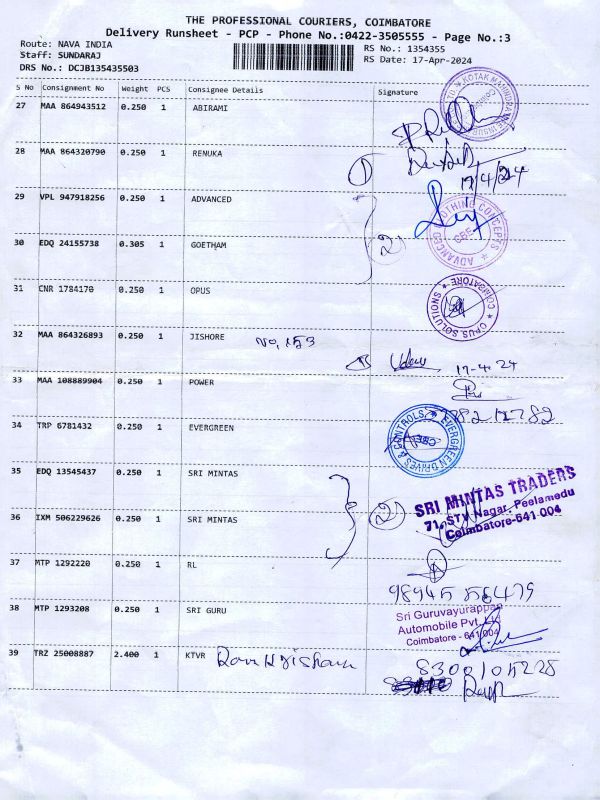 THE PROFESSIONAL COURIERS, COIMBATORE
Delivery Runsheet - PCP - Phone No.:0422-3505555 - Page No.:3
Route: NAVA INDIA
Staff: SUNDARAJ
DRS No.: DCJB135435503
RS No.: 1354355
RS Date: 17-Apr-2024
S No Consignment No Weight PCS Consignee Details Signature
27 MAA 864943512 0.250 1 ABIRAMI
28 MAA 864320790 0.250 1 RENUKA
1 17/4/24
29 VPL 947918256 0.250 1 ADVANCED
ADVANCED CLOTHING CONCEPTS CBE
30 EDQ 24155738 0.305 1 GOETHAM
2
31 CNR 1784170 0.250 1 OPUS
OPUS SOLUTIONS COIMBATORE
32 MAA 864326893 0.250 1 JISHORE No, 153
17-4-24
33 MAA 108889904 0.250 1 POWER
34 TRP 6781432 0.250 1 EVERGREEN
EVERGREEN DRIVES & CONTROLS
35 EDQ 13545437 0.250 1 SRI MINTAS
SRI MINTAS TRADERS
71, STV Nagar, Peelamedu
Coimbatore-641 004
2
36 IXM 506229626 0.250 1 SRI MINTAS
37 MTP 1292220 0.250 1 RL
98945 56479
38 MTP 1293208 0.250 1 SRI GURU
Sri Guruvayurappan
Automobile Pvt. Ltd
Coimbatore - 641 004
39 TRZ 25008887 2.400 1 KTVR
8300105228